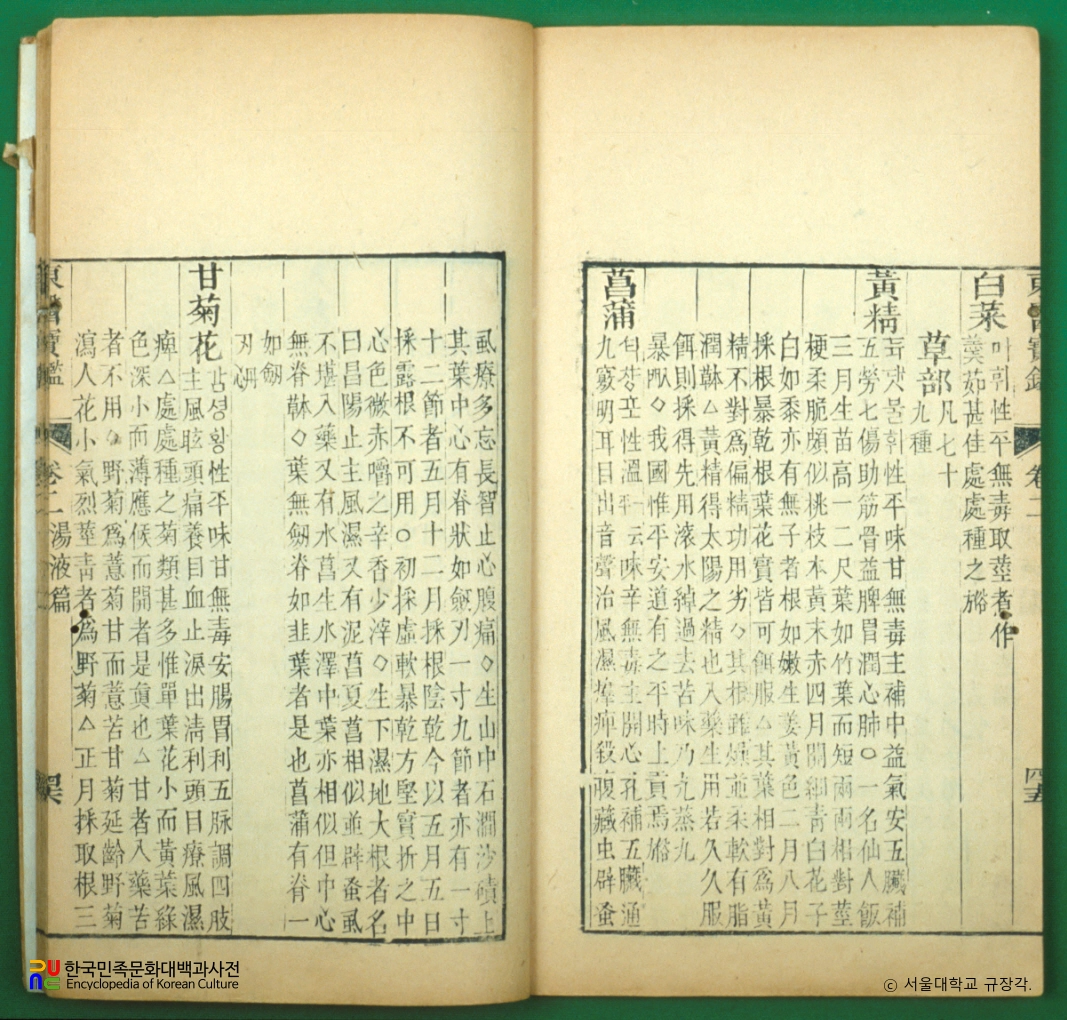 東醫寶鑑 卷二 四五
白菜 머휘性平無毒取莖煮作
羹茹甚佳處處種之俗
草部 凡七十九種
黃精 듁댓불휘性平味甘無毒主補中益氣安五臟補
五勞七傷助筋骨益脾胃潤心肺○一名仙人飯
三月生苗高一二尺葉如竹葉而短兩兩相對莖
梗柔脆頗似桃枝本黃末赤四月開細靑白花子
白如黍亦有無子者根如嫩生姜黃色二月八月
採根暴乾根葉花實皆可餌服△其葉相對爲黃
精不對爲偏精功用劣◇其根雖燥並柔軟有脂
潤△黃精得太陽之精也入藥生用若久久服
餌則採得先用滾水綽過去苦味乃九蒸九
暴◇我國惟平安道有之平時上貢焉俗
菖蒲 셕챵포性溫平一云味辛無毒主開心孔補五臟通
九竅明耳目出音聲治風濕痺殺腹藏虫辟蚤
虱療多忘長智止心腹痛◇生山中石澗沙磧上
其葉中心有脊狀如劒刃一寸九節者亦有一寸
十二節者五月十二月採根陰乾今以五月五日
採露根不可用○初採虛軟暴乾方堅實折之中
心色微赤嚼之辛香少滓◇生下濕地大根者名
曰昌陽止主風濕又有泥菖夏菖相似並辟蚤虱
不堪入藥又有水菖生水澤中葉亦相似但中心
無脊◇葉無劒脊如韭葉者是也菖蒲有脊一
如劒
刃
甘菊花 강셩황性平味甘無毒安腸胃利五脉調四肢
主風眩頭痛養目血止淚出淸利頭目療風濕
痺△處處種之菊類甚多惟單葉花小而黃葉綠
色深小而薄應候而開者是眞也△甘者入藥苦
者不用◇野菊爲薏菊甘而薏苦甘菊延齡野菊
瀉人花小氣烈莖靑者爲野菊△正月採取根三
東醫寶鑑 卷二 湯液篇
한국민족문화대백과사전
Encyclopedia of Korean Culture
ⓒ 서울대학교 규장각.